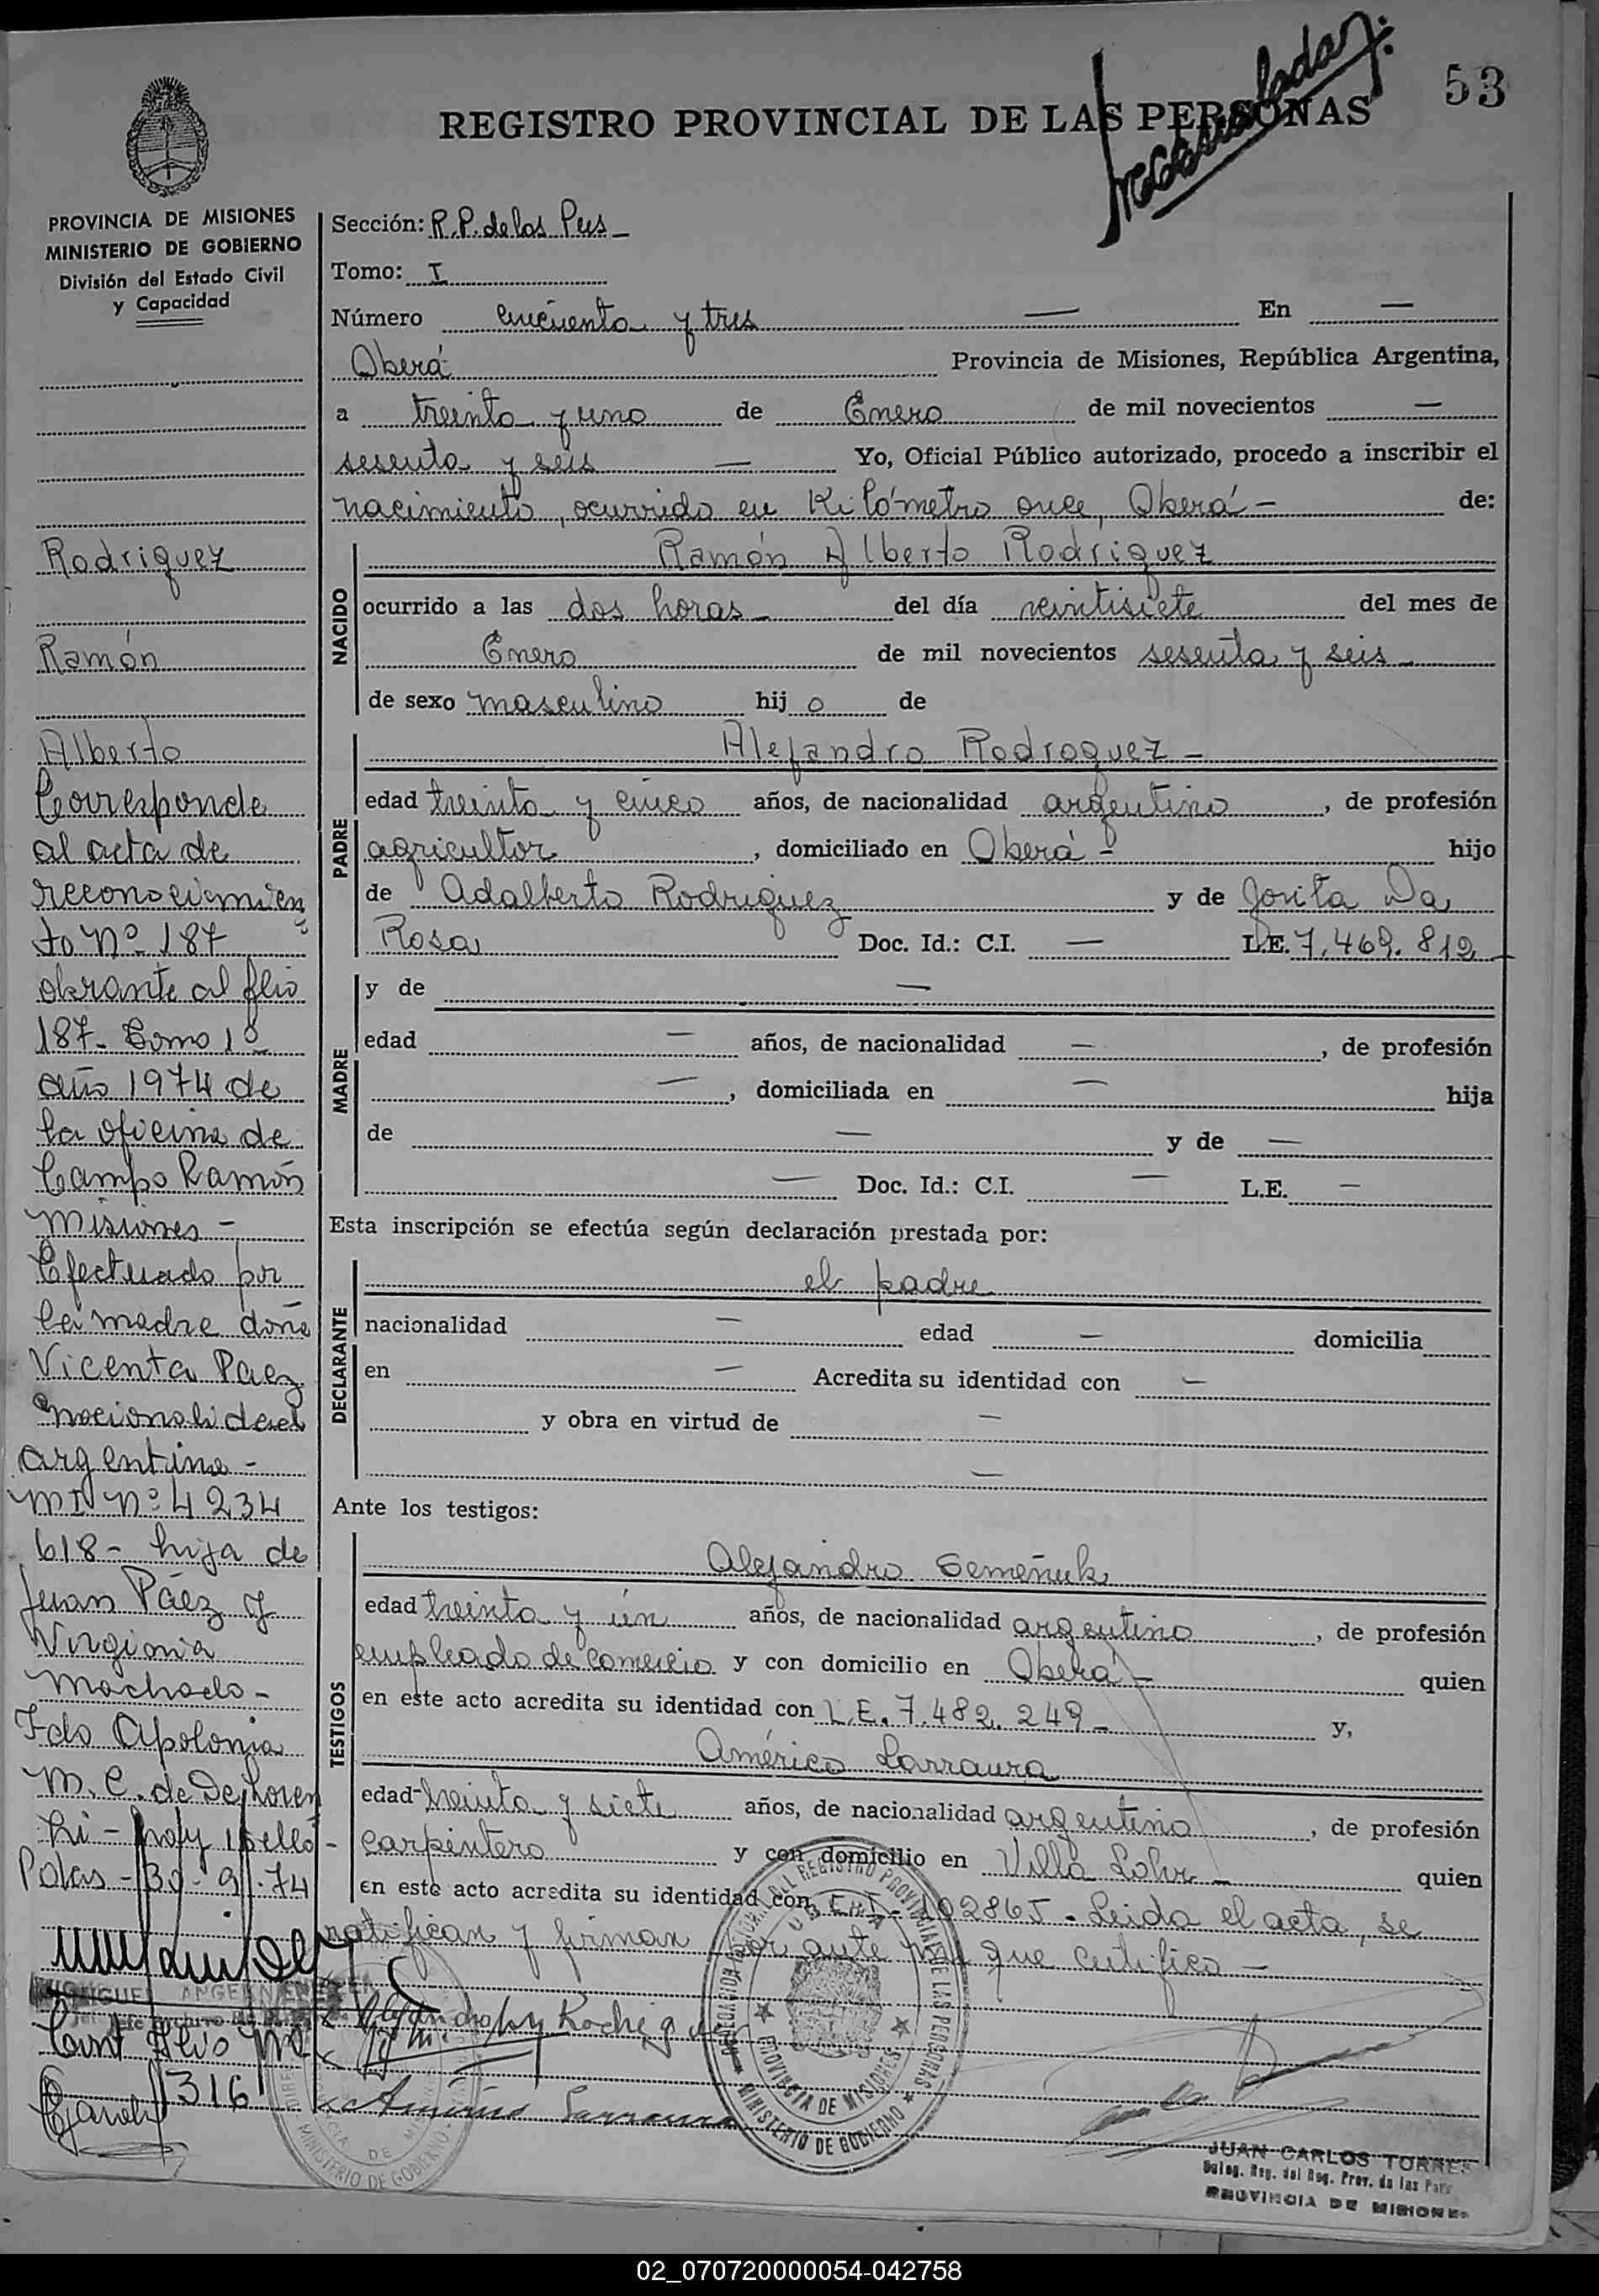 53
REGISTRO PROVINCIAL DE LAS PERSONAS
PROVINCIA DE MISIONES
MINISTERIO DE GOBIERNO
División del Estado Civil
y Capacidad
Rodriguez
Ramón
Alberto
Corresponde
al acta de
reconocimien
to Nº 187
obrante al flio
187- Tomo 1º
año 1974 de
la oficina de
Campo Ramón
Misiones -
Efectuado por
la madre doña
Vicenta Paez
nacionalidad
argentina -
MI Nº 4234
618 - hija de
Juan Páez y
Virginia
Machado -
Fdo Apolonia
M. C. de
hi - hay 1 sello -
Pdas - 30 - 9 - 74
316
Sección: R.P. de los Pers -
Tomo: I
Número cincuenta y tres — En —
Oberá Provincia de Misiones, República Argentina,
a treinta y uno de Enero de mil novecientos —
sesenta y seis — Yo, Oficial Público autorizado, procedo a inscribir el
nacimiento, ocurrido en Kilómetro once, Oberá - de:
NACIDO
Ramón Alberto Rodriguez
ocurrido a las dos horas - del día veintisiete del mes de
Enero de mil novecientos sesenta y seis -
de sexo masculino hijo de
PADRE
Alejandro Rodroguez -
edad treinta y cinco años, de nacionalidad argentino, de profesión
agricultor, domiciliado en Oberá - hijo
de Adalberto Rodriguez y de Jovita Da
Rosa Doc. Id.: C.I. — L.E. 7.469.812
MADRE
y de —
edad — años, de nacionalidad —, de profesión
—, domiciliada en — hija
de — y de —
— Doc. Id.: C.I. — L.E. —
Esta inscripción se efectúa según declaración prestada por:
DECLARANTE
el padre
nacionalidad — edad — domicilia
en — Acredita su identidad con —
y obra en virtud de —
—
Ante los testigos:
TESTIGOS
Alejandro Semeñuk
edad treinta y ún años, de nacionalidad argentino, de profesión
empleado de comercio y con domicilio en Oberá - quien
en este acto acredita su identidad con L.E. 7.482.249 - y,
Américo Larraura
edad treinta y siete años, de nacionalidad argentino, de profesión
carpintero y con domicilio en Villa Lohr - quien
en este acto acredita su identidad con - Leida el acta, se
ratifican y firman por ante mi que certifico -
Américo Larraura
PROVINCIA DE MISIONES
MINISTERIO DE GOBIERNO
JUAN CARLOS TORRES
Deleg. Reg. del Reg. Prov. de las Pers
PROVINCIA DE MISIONES
02_070720000054-042758